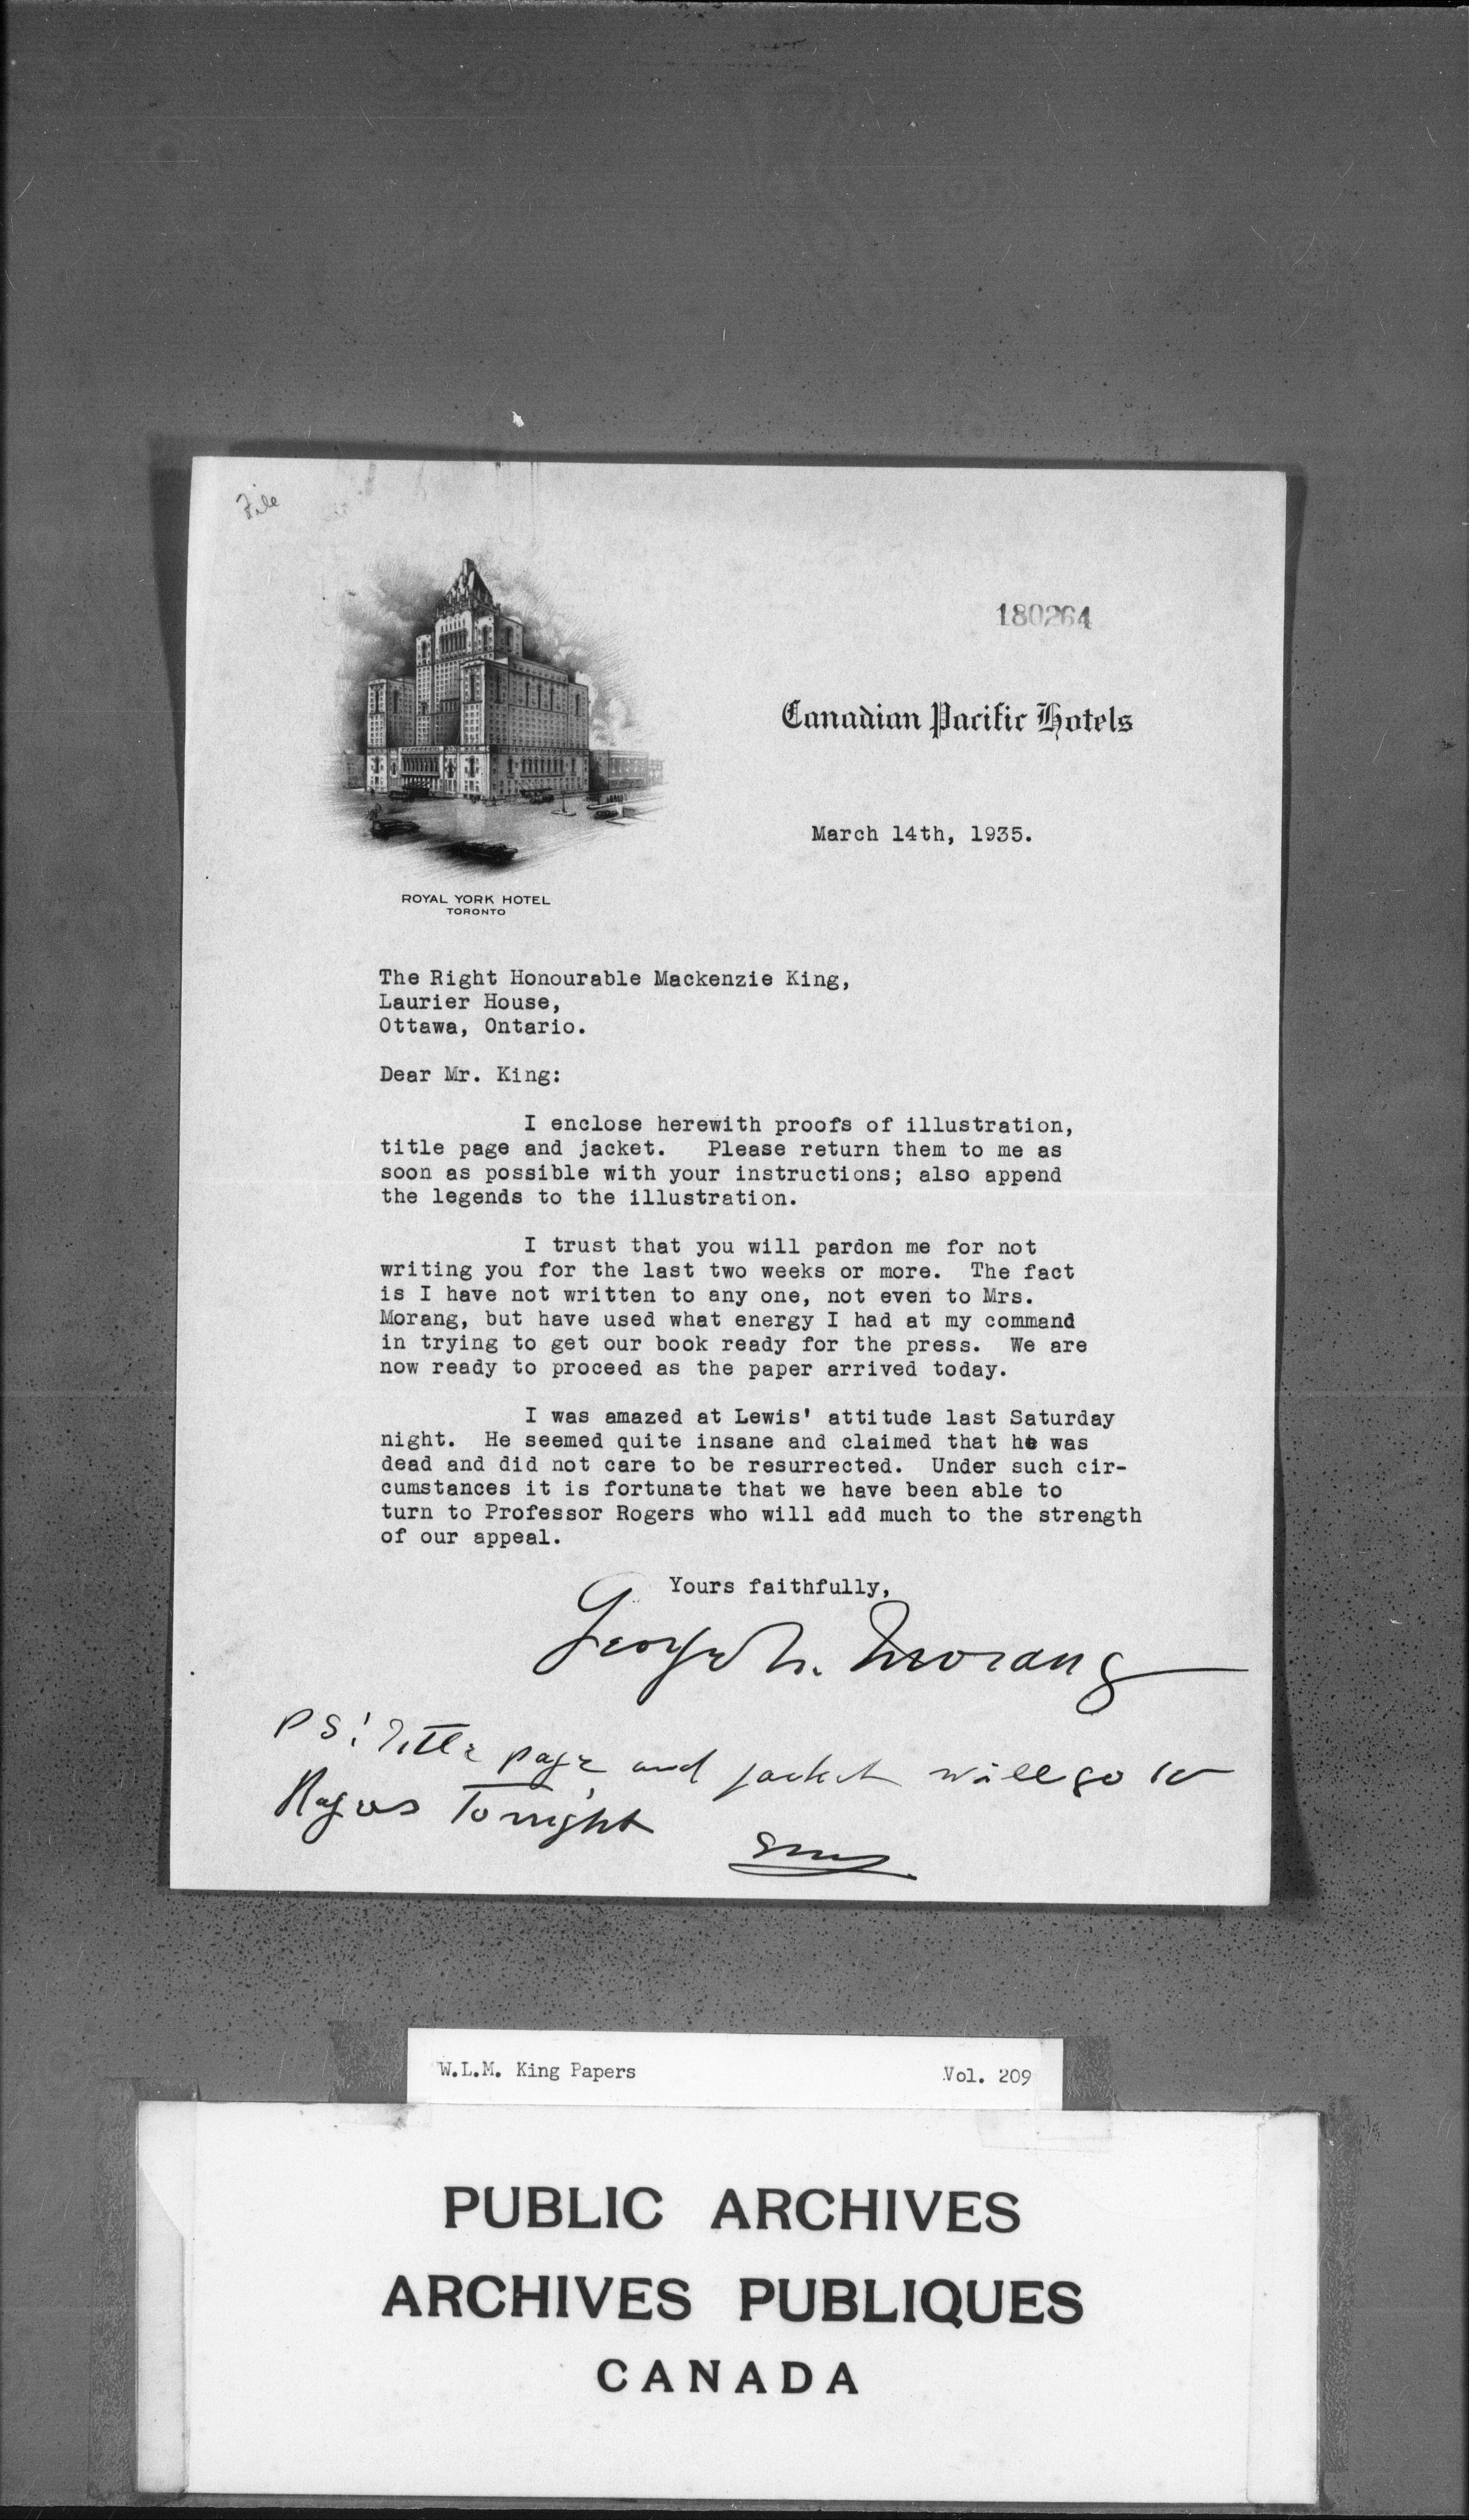 File
180264
Canadian Pacific Hotels
March 14th, 1935.
ROYAL YORK HOTEL
TORONTO
The Right Honourable Mackenzie King,
Laurier House,
Ottawa, Ontario.
Dear Mr. King:
I enclose herewith proofs of illustration,
title page and jacket. Please return them to me as
soon as possible with your instructions; also append
the legends to the illustration.
I trust that you will pardon me for not
writing you for the last two weeks or more. The fact
is I have not written to any one, not even to Mrs.
Morang, but have used what energy I had at my command
in trying to get our book ready for the press. We are
now ready to proceed as the paper arrived today.
I was amazed at Lewis' attitude last Saturday
night. He seemed quite insane and claimed that he was
dead and did not care to be resurrected. Under such cir-
cumstances it is fortunate that we have been able to
turn to Professor Rogers who will add much to the strength
of our appeal.
Yours faithfully,
George N. Morang
PS! Title page and jacket will go to
Rogers Tonight
W.L.M. King Papers Vol. 209
PUBLIC ARCHIVES
ARCHIVES PUBLIQUES
CANADA